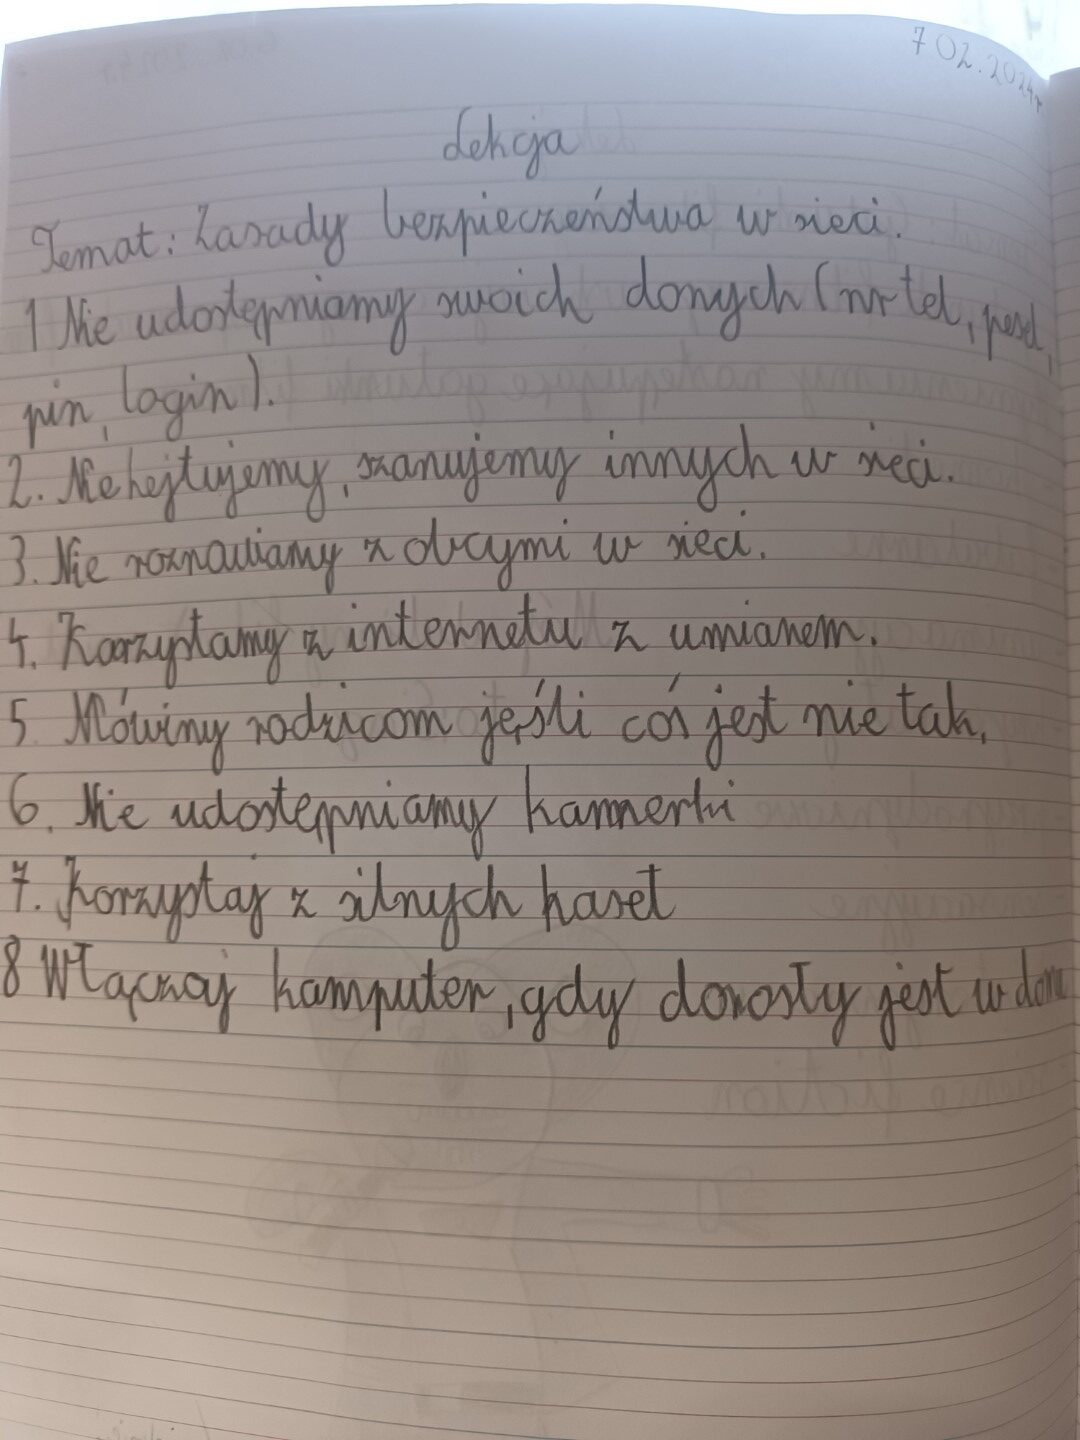 7 02.2024r
Lekcja
Temat: Zasady bezpieczeństwa w sieci.
1 Nie udostępniamy swoich danych (nr tel, pesel,
pin, login).
2. Nie hejtujemy, szanujemy innych w sieci.
3. Nie rozmawiamy z obcymi w sieci.
4. Korzystamy z internetu z umiarem.
5 Mówimy rodzicom jęśli coś jest nie tak,
6. Nie udostępniamy kamerki
7. Korzystaj z silnych haseł
8 Włączaj komputer, gdy dorosły jest w domu